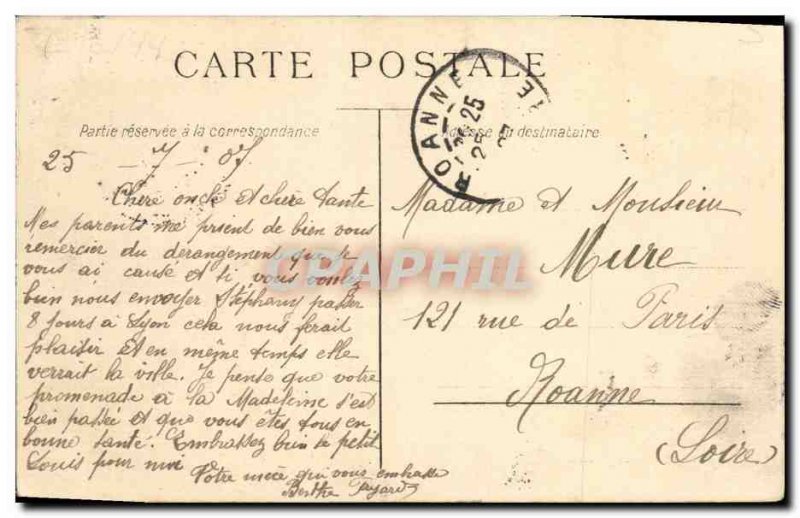 CARTE POSTALE
Partie réservée à la correspondance
Adresse du destinataire
ROANNE
25
25 - 7 - 07
Chere oncle et chere tante
Mes parents me prient de bien vous
remercier du derangement que je
vous ai causé et si vous voulez
bien nous envoyer Stéphany passer
8 jours à Lyon cela nous ferait
plaisir et en même temps elle
verrait la ville. Je pense que votre
promenade à la Madeleine s'est
bien passée et que vous êtes tous en
bonne santé. Embrassez bien le petit
Louis pour moi
Votre nièce qui vous embrasse
Berthe
Madame et Monsieur
Mure
121 rue de Paris
Roanne
(Loire)
CPAPHIL